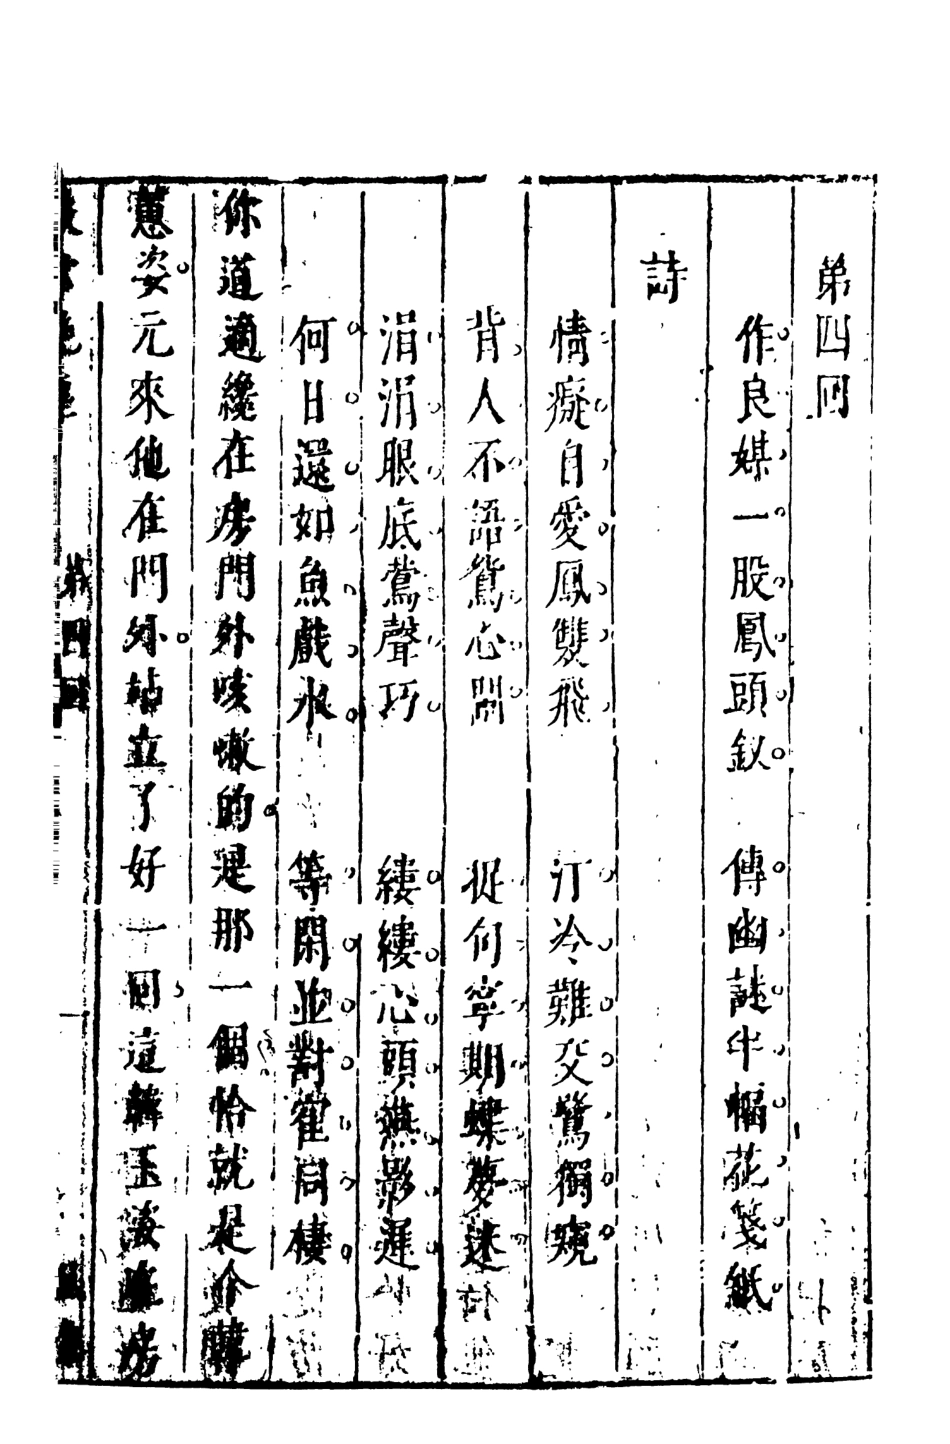 第四回
作良媒一股鳳頭釵　傳幽謎半幅花箋紙
詩
情癡自愛鳳雙飛　汀冷難交鷺獨窺
背人不語鴛心鬧　捉句寧期蝶夢迷
涓涓眼底鶯聲巧　縷縷心頭燕影遲
何日還如魚戲水　等閑並對寉同棲
你道適纔在房門外咳嗽的是那一個恰就是个韓
蕙姿元來他在門外站立了好一回這韓玉姿在房
第四回